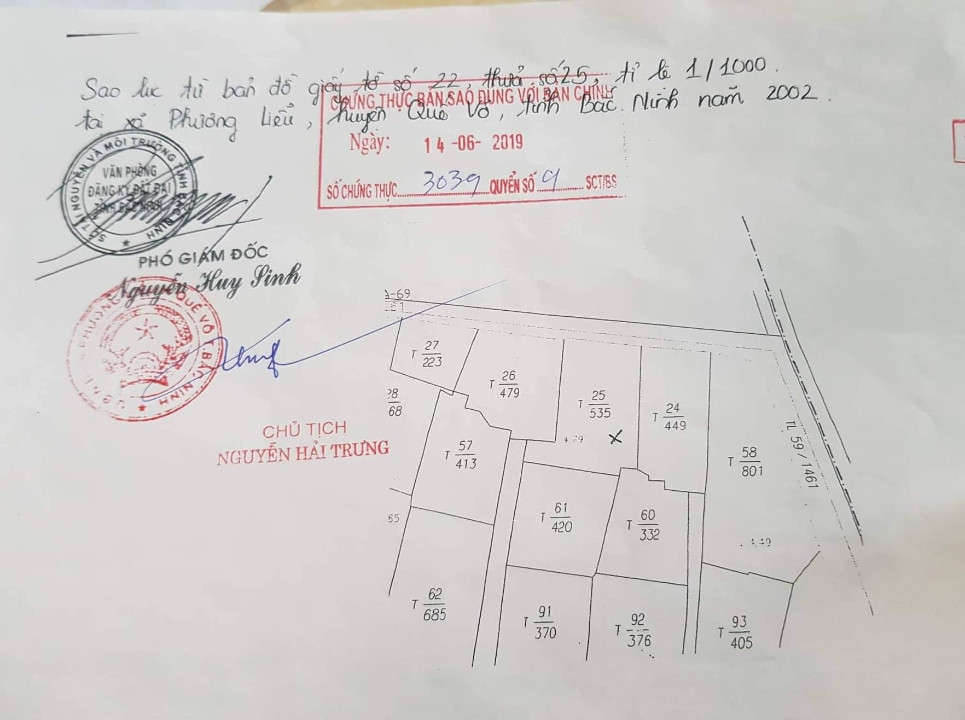 Sao lục từ bản đồ giấy tờ số 22, thửa số 25, tỉ lệ 1/1000.
tại xã Phương Liễu, huyện Quế Võ, tỉnh Bắc Ninh năm 2002.
CHỨNG THỰC BẢN SAO ĐÚNG VỚI BẢN CHÍNH
Ngày: 14-06-2019
SỐ CHỨNG THỰC 3039 QUYỂN SỐ 9 SCT/BS
SỞ TÀI NGUYÊN VÀ MÔI TRƯỜNG TỈNH BẮC NINH
VĂN PHÒNG
ĐĂNG KÝ ĐẤT ĐAI
TỈNH BẮC NINH
PHÓ GIÁM ĐỐC
Nguyễn Huy Sinh
QUẾ VÕ
BẮC NINH
CHỦ TỊCH
NGUYỄN HẢI TRUNG
-69
T 27
223
T 26
479
T 25
535
T 24
449
28
68
T 57
413
T 58
801
TL 59/1461
T 61
420
T 60
332
55
T 62
685
T 91
370
T 92
376
T 93
405